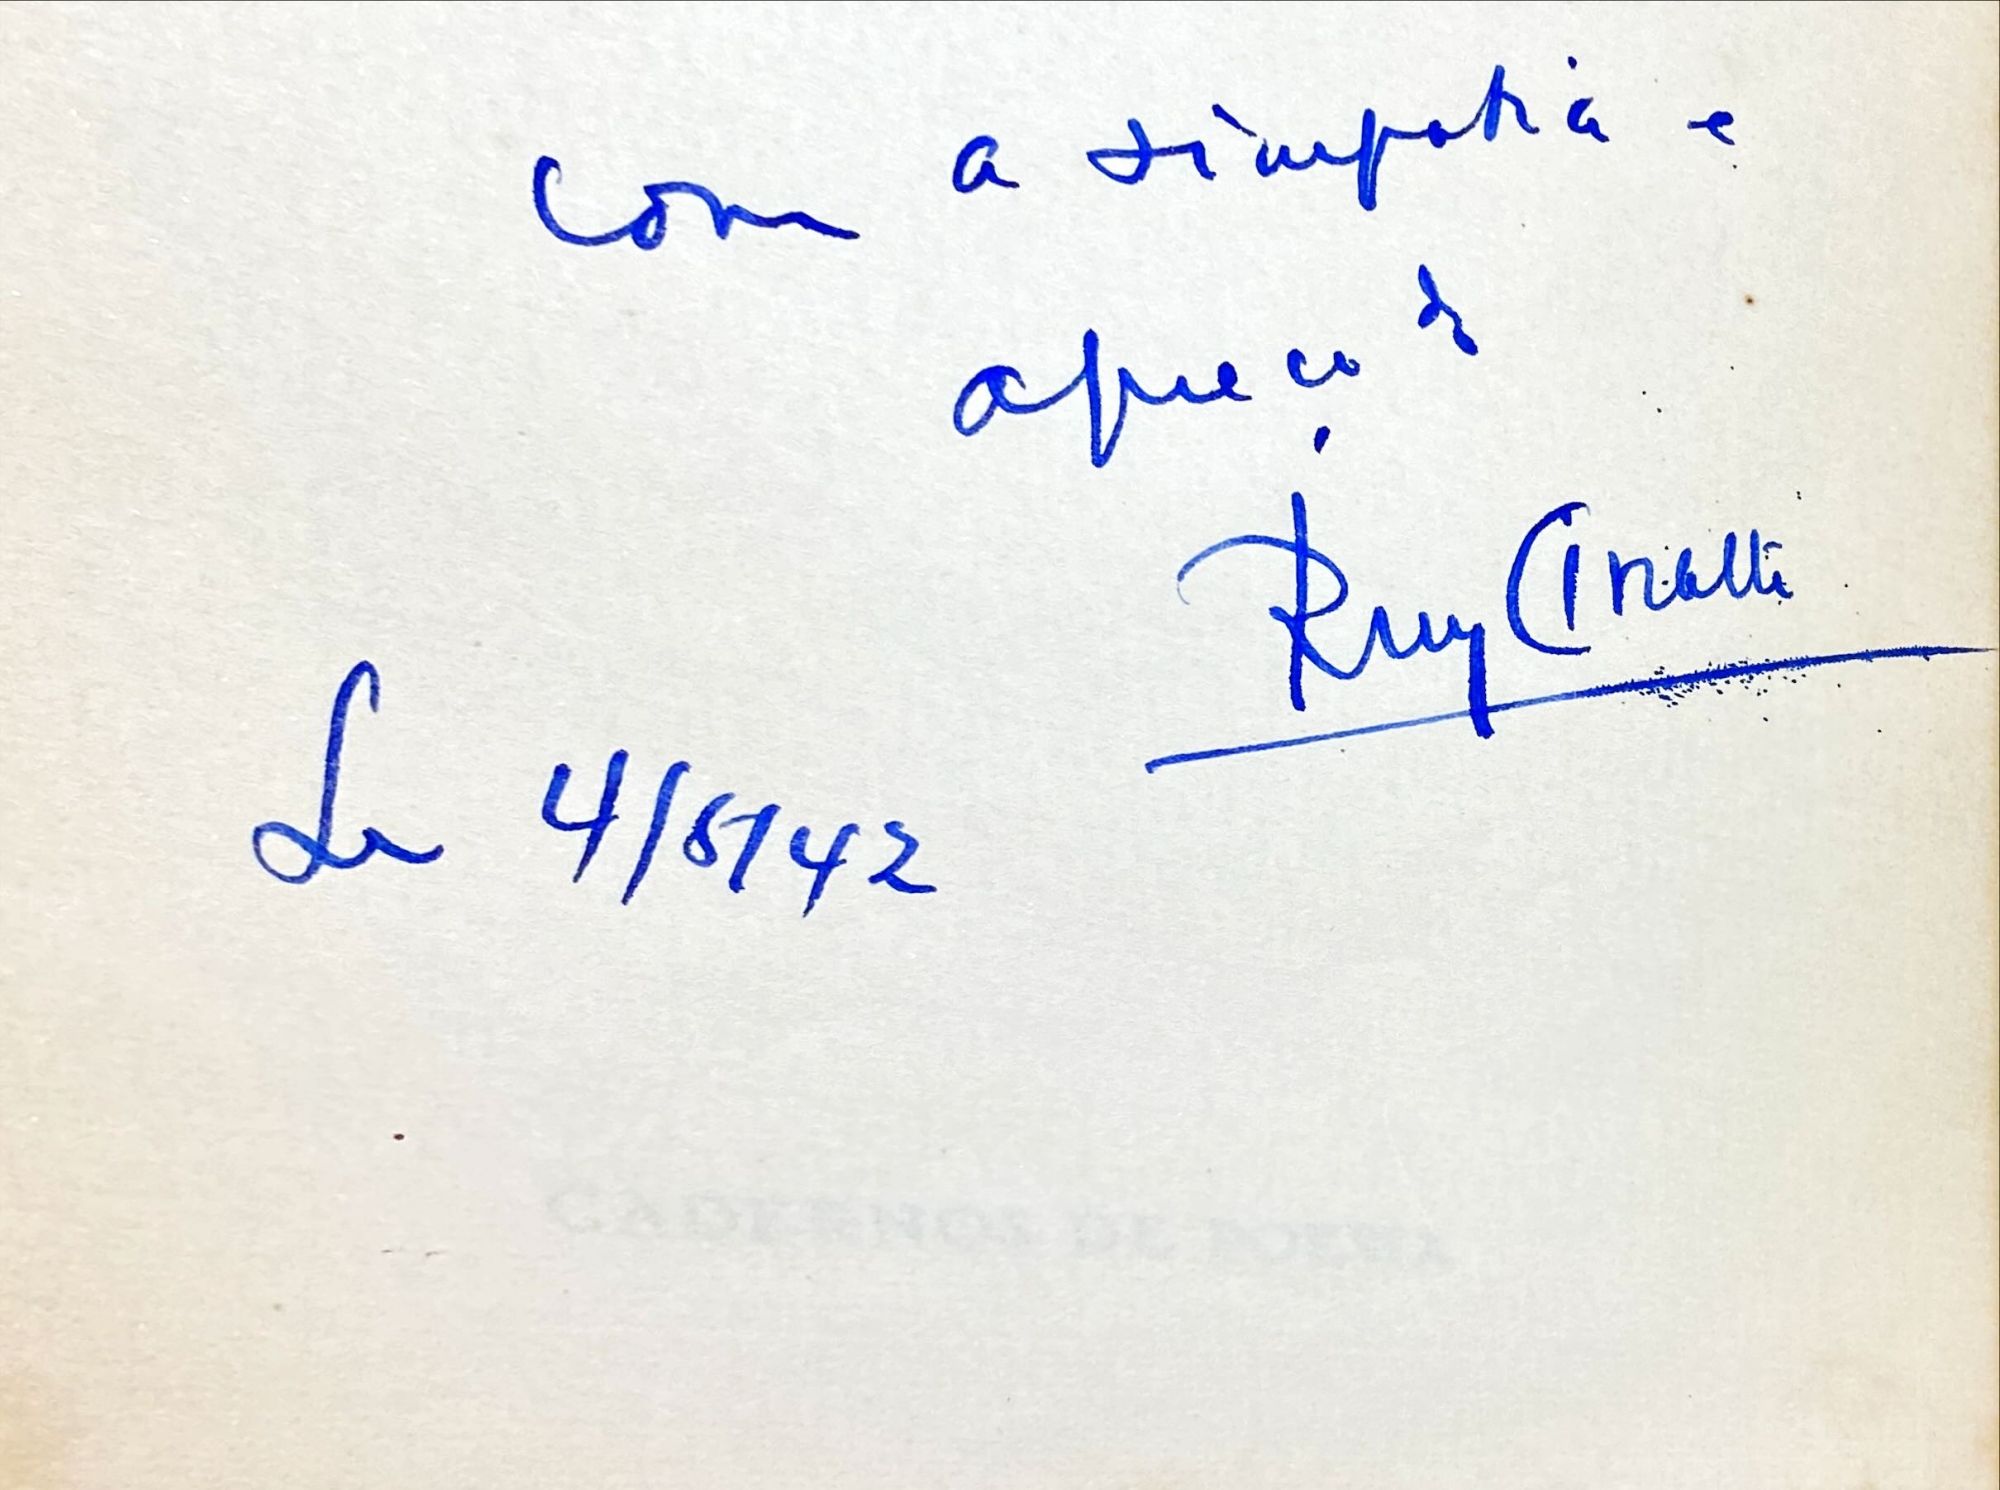 com a simpatia e
apreço de
Ruy Cinatti
Lx 4/5/42
CADERNOS DE POESIA